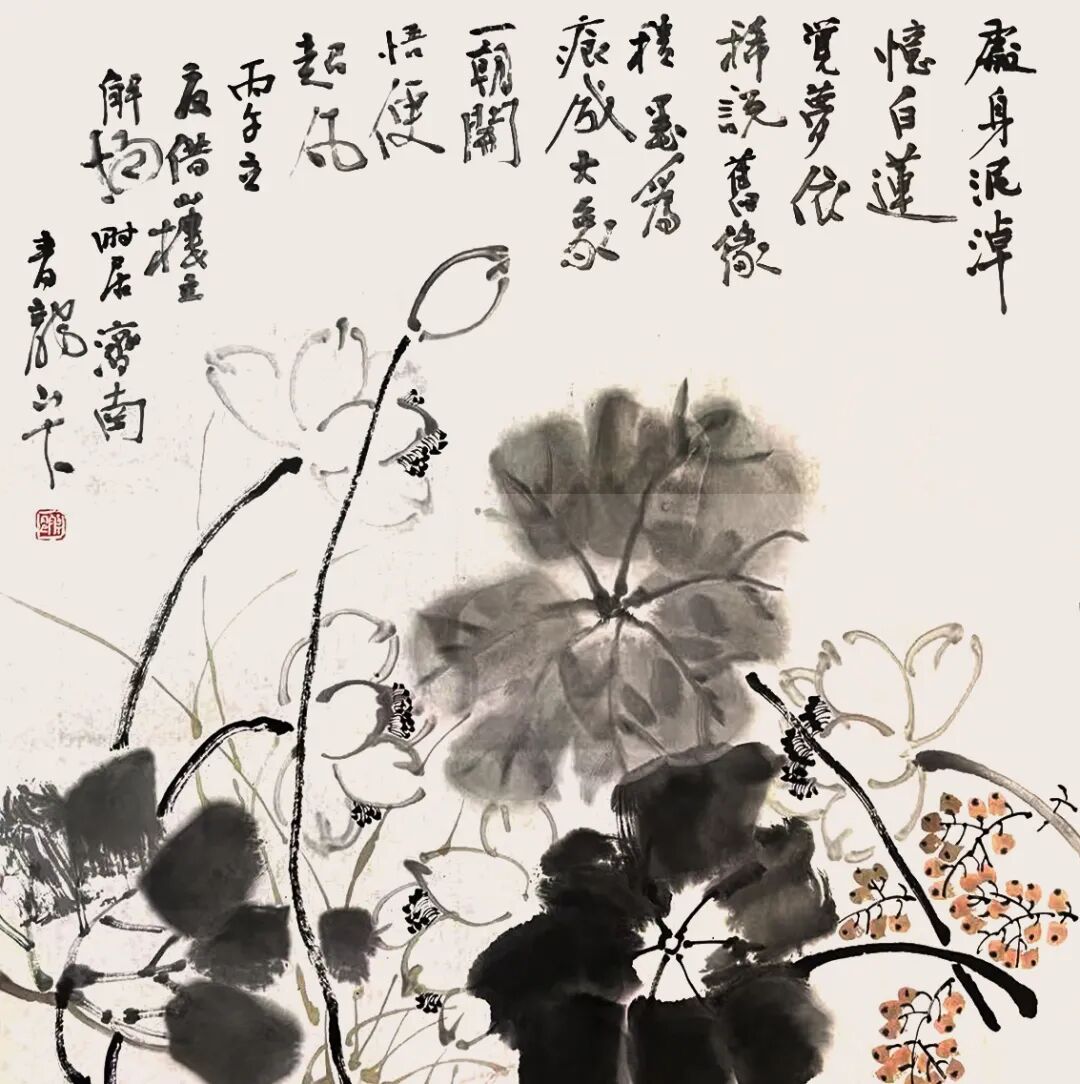 處身泥淖
憶白蓮
覺夢依
稀說舊緣
積墨為
痕成大象
一朝開
悟便
超凡
丙午立
夏借山樓主
解
時居濟南
青龍山下